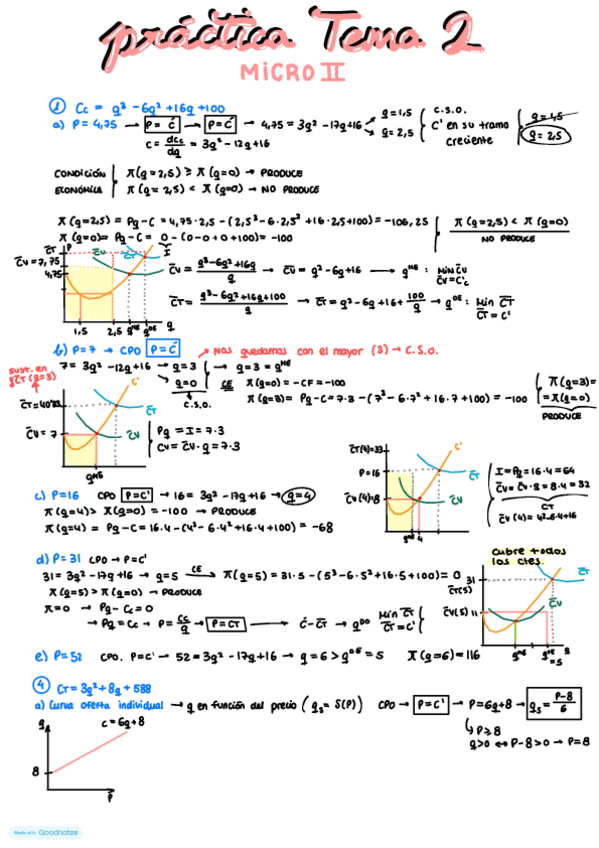 práctica Tema 2
MICRO II
① Cc = q³ - 6q² + 16q + 100
a) P = 4,75 → P = C' → P = C' → 4,75 = 3q² - 17q+16 → q = 1,5 → q = 2,5 C.S.O. C' en su tramo creciente q = 1,5 q = 2,5
C = dCc/dq = 3q² - 12q + 16
CONDICIÓN ECONÓMICA π(q = 2,5) ≥ π(q=0) → PRODUCE
π(q = 2,5) < π(q=0) → NO PRODUCE
π(q=2,5) = Pq - C = 4,75·2,5 - (2,5³ - 6·2,5² + 16·2,5+100) = -106,25 π(q=2,5) < π(q=0)
π(q=0) = Pq - C = 0 - (0-0+0+100) = -100 NO PRODUCE
CT P CV CT I
CV = 7,75
4,75
1,5 2,5 qME qOE q
CV = q³-6q²+16q/q → CV = q² - 6q + 16 → qME : Min CV CV = C'c
CT = q³-6q²+16q+100/q → CT = q² - 6q + 16 + 100/q → qOE : Min CT CT = C'
b) P = 7 → CPO P = C' → Nos quedamos con el mayor (3) → C.S.O.
7 = 3q² - 12q + 16 → q = 3 → q = 3 = qME
q = 0 CE π(q=0) = -CF = -100
C.S.O. π(q=3) = Pq - C = 7·3 - (7³ - 6·7² + 16·7 + 100) = -100 π(q=3) = = π(q=0) PRODUCE
sust. en CT (q=3)
CT = 40'33 C' CT
CV = 7 CV
qME
Pq = I = 7·3
CV = CV·q = 7·3
CT(4)=33 C'
P = 16 CT
CV(4)=8 CV
qME 4
I = Pq = 16·4 = 64
CV = CV·q = 8·4 = 32
CT
CV(4) = 4²-6·4+16
c) P = 16 CPO P = C' → 16 = 3q² - 17q + 16 → q = 4
π(q=4) > π(q=0) = -100 → PRODUCE
π(q=4) = Pq - C = 16·4 - (4³ - 6·4² + 16·4 + 100) = -68
d) P = 31 CPO → P = C'
31 = 3q² - 17q + 16 → q = 5 CE → π(q=5) = 31·5 - (5³ - 6·5² + 16·5 + 100) = 0
π(q=5) > π(q=0) → PRODUCE
π = 0 → Pq - Cc = 0
→ Pq = Cc → P = Cc/q → P = CT → C' - CT → qOO Min CT CT = C'
Cubre todos los ctes.
31 CT
CT(5)
CV(5) 11 CV
qME qOE = 5 q
e) P = 52 CPO. P = C' → 52 = 3q² - 17q + 16 → q = 6 > qOE = 5 π(q=6) = 116
④ CT = 3q² + 8q + 588
a) Curva oferta individual → q en función del precio (qs = S(P)) CPO → P = C' → P = 6q + 8 → qs = P-8/6
q C = 6q+8
8
P
↳ P ≥ 8
q > 0 ↔ P - 8 > 0 → P = 8
Made with Goodnotes